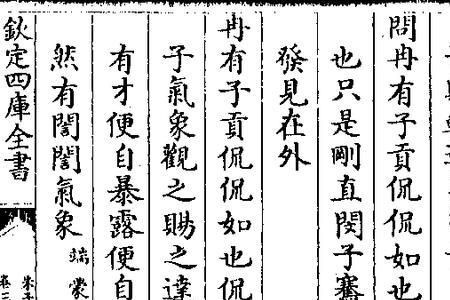 問冉有子貢侃侃如也
也只是剛直閔子騫
發見在外
冉有子貢侃侃如也侃
子氣象觀之賜之達
有才便自暴露便自
然有誾誾氣象 端蒙
欽定四庫全書